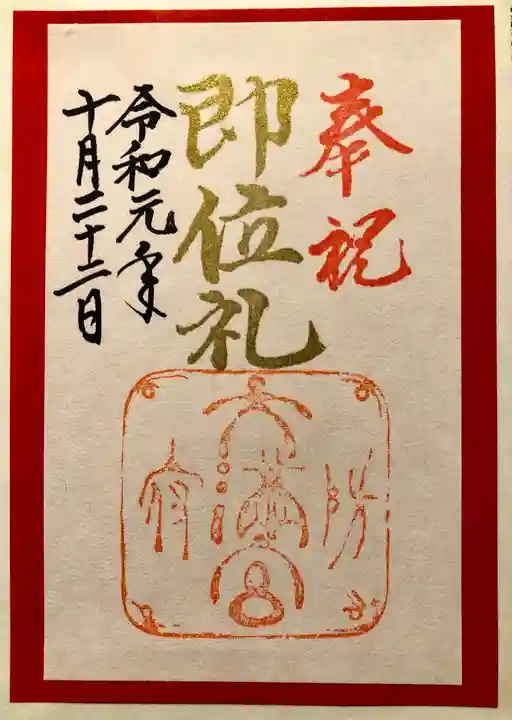 奉祝
即位礼
令和元年
十月二十二日
防府
天満宮